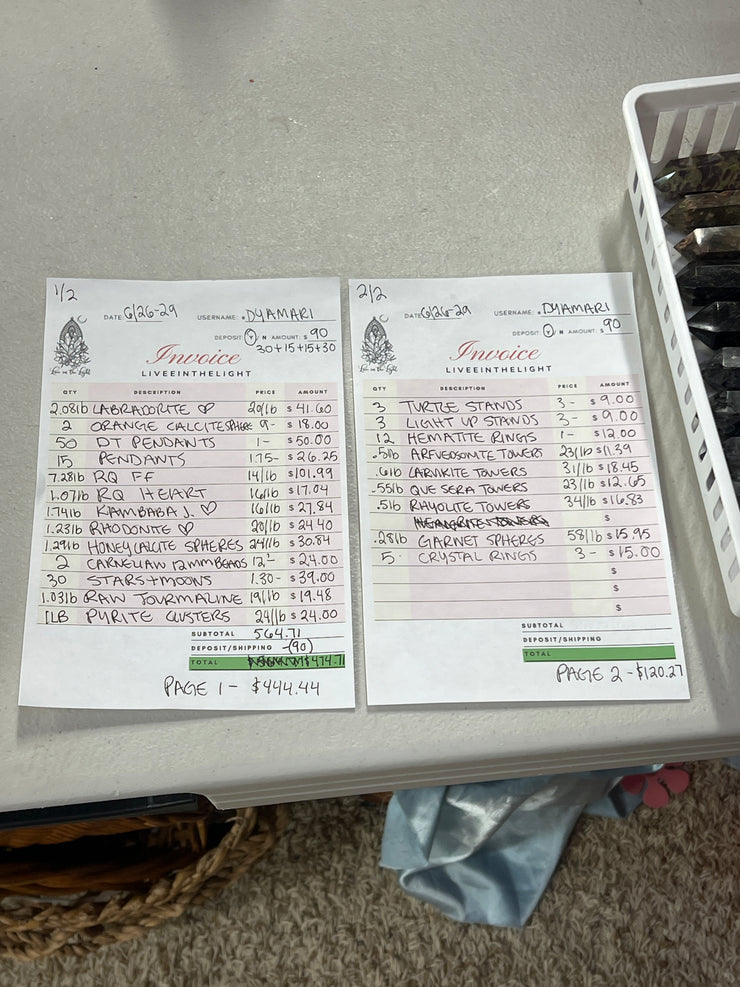 1/2
DATE: 6/26-29 USERNAME: DYAMARI
DEPOSIT: Y/N AMOUNT: $ 90
30+15+15+30
Live in the Light
Invoice
LIVEEINTHELIGHT
QTY DESCRIPTION PRICE AMOUNT
2.08lb LABRADORITE ♡ 20/lb $ 41.60
2 ORANGE CALCITE SPHERE 9- $ 18.00
50 DT PENDANTS 1- $ 50.00
15 PENDANTS 1.75- $ 26.25
7.28lb RQ FF 14/lb $101.99
1.07lb RQ HEART 16/lb $ 17.04
1.74lb KAMBABA J. ♡ 16/lb $ 27.84
1.23lb RHODONITE ♡ 20/lb $ 24.40
1.29lb HONEY CALCITE SPHERES 24/lb $ 30.84
2 CARNELIAN 12mm BEADS 12- $ 24.00
30 STARS+MOONS 1.30- $ 39.00
1.03lb RAW TOURMALINE 19/lb $ 19.48
1LB PYRITE CLUSTERS 24/lb $ 24.00
SUBTOTAL 564.71
DEPOSIT/SHIPPING -(90)
TOTAL $474.71
PAGE 1 - $444.44
2/2
DATE: 6/26-29 USERNAME: DYAMARI
DEPOSIT: Y/N AMOUNT: $ 90
Live in the Light
Invoice
LIVEEINTHELIGHT
QTY DESCRIPTION PRICE AMOUNT
3 TURTLE STANDS 3- $ 9.00
3 LIGHT UP STANDS 3- $ 9.00
12 HEMATITE RINGS 1- $ 12.00
.51lb ARFVEDSOMITE TOWERS 23/lb $11.39
.61lb LARVIKITE TOWERS 31/lb $ 18.45
.55lb QUE SERA TOWERS 23/lb $ 12.65
.51lb RHYOLITE TOWERS 34/lb $16.83
$
.28lb GARNET SPHERES 58/lb $ 15.95
5 CRYSTAL RINGS 3- $ 15.00
$
$
$
SUBTOTAL
DEPOSIT/SHIPPING
TOTAL
PAGE 2 - $120.27